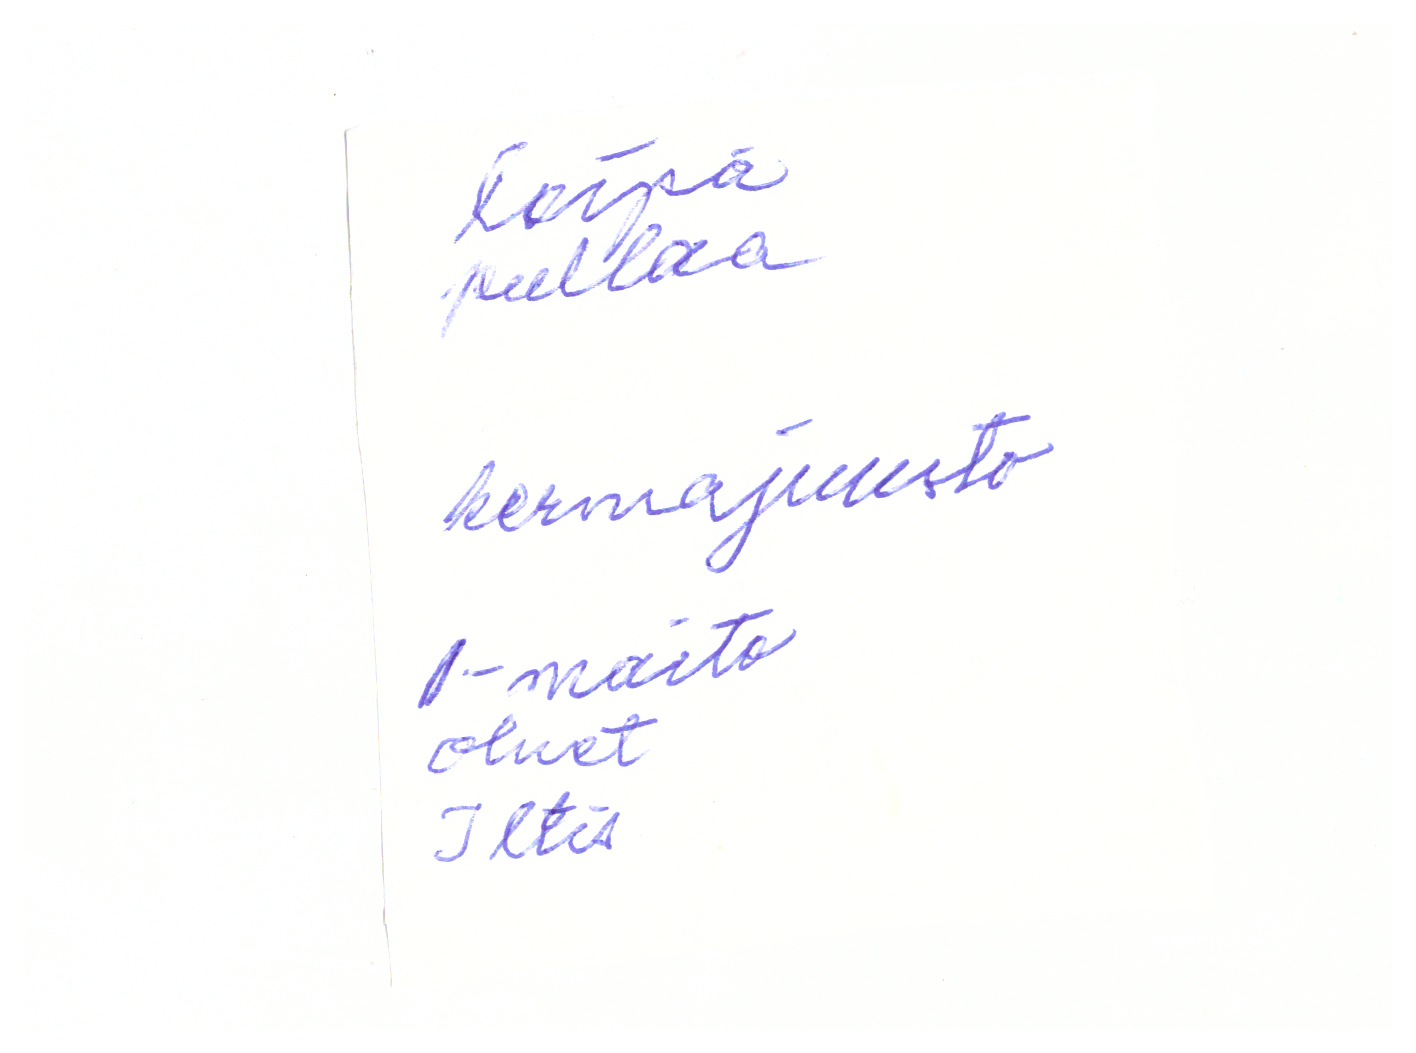 Loipä
pullaa
kermajuusto
1-maito
oluet
Iltis